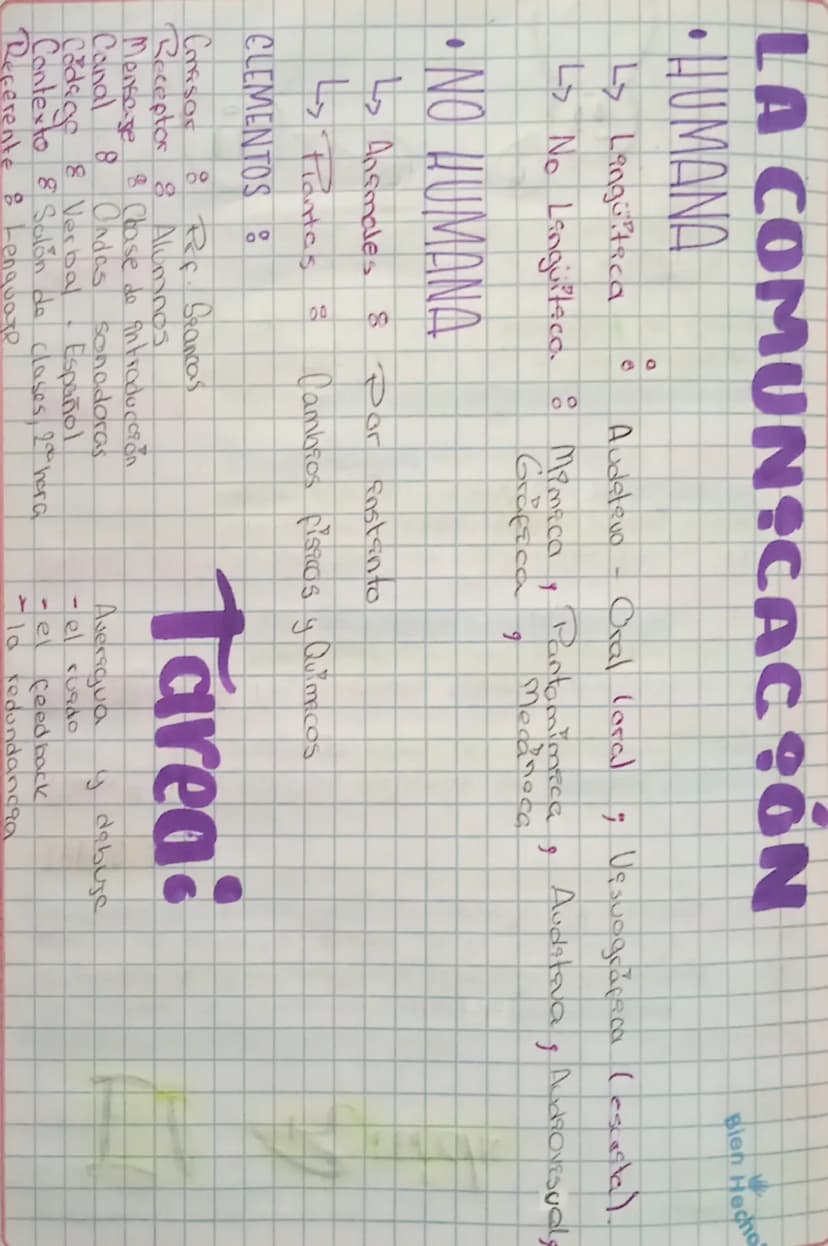 LA COMUNICACIÓN
Bien Hecho!
• HUMANA
↳ Lingüítica : Auditivo - Oral (oral) ; Visuográfica (escrita).
↳ No Lingüítica : Mímica, Pantomímica, Auditiva, Audiovisual,
Gráfica, Mecánica
• NO HUMANA
↳ Animales : Por instinto
↳ Plantas : Cambios físicos y Químicos
ELEMENTOS :
Emisor : Prf.
Receptor : Alumnos
Mensaje : Clase de introducción
Canal : Ondas sonadoras
Código : Verbal - Español
Contexto : Salón de clases, 2da hora
Referente : Lenguaje
Tarea:
Averigua y dibuje
- el ruido
- el feedback
- la redundancia